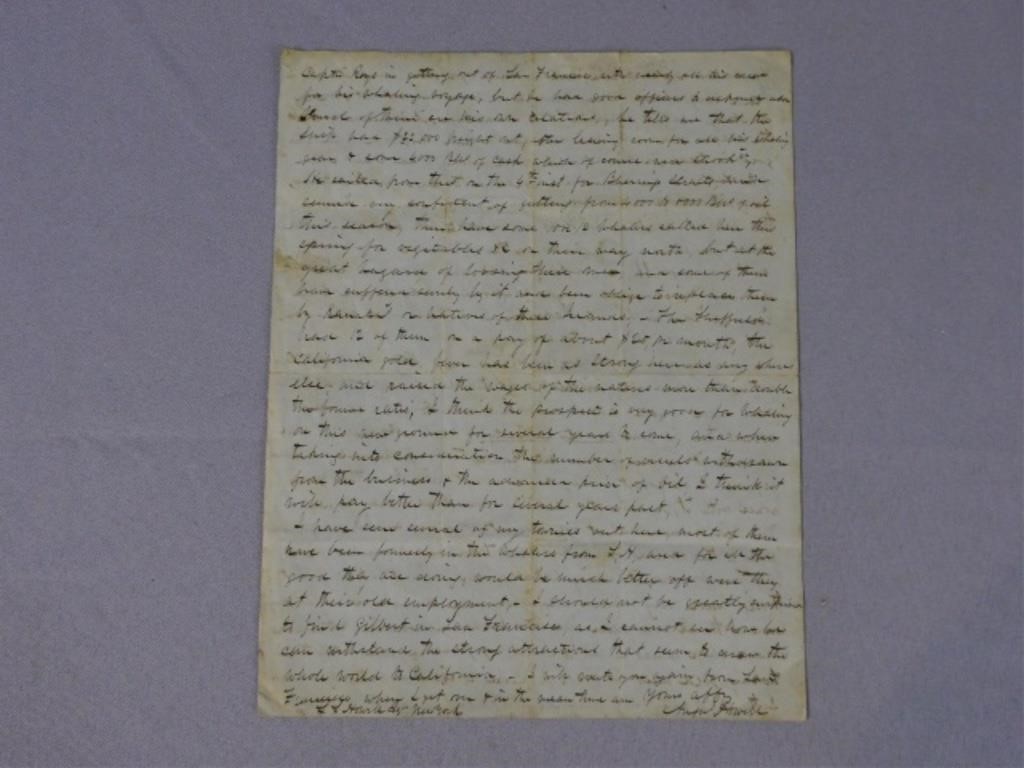 Captn Roys in getting out of San Francisco with nearly all his crew
for his whaling voyage, but he had good officers &
Several of them are his own relations, he tells me that the
Ship had freight out, after leaving room for all his whaling
gear & some 4000 Bbls of Cask which of course was
He sailed from that on the 4th inst for Bherring Straits
confident of getting from 4000 to Bbls of oil
this season, There have some whalers called here this
spring for vegitables &c on their way north, but at the
great hazard of loosing their men, and some of them
have suffered by it & have been oblige to replace them
by Kanakas or natives of these Islands, - The Sheffield
have 12 of them on a pay of about pr month, the
California gold fever has been as strong here as any where
else and raised the wages of the natives more than treble
the former rates, I think the prospect is very good for Whaling
on this new ground for several years to come, and when
taking into consideration the number of vessels withdrawn
from the business & the advanced price of oil I think it
will pay better than for several years past,
I have seen several of my out here, most of them
have been formerly in the Whalers from S.H. and for all the
good they are doing, would be much better off were they
at their old employment, - I should not be greatly surprised
to find Gilbert in San Francisco, as I cannot see how he
can withstand the strong attractions that seem to draw the
whole world to California, - I will write you again from San
Francisco when I get on & in the mean time am Yours affy
New York